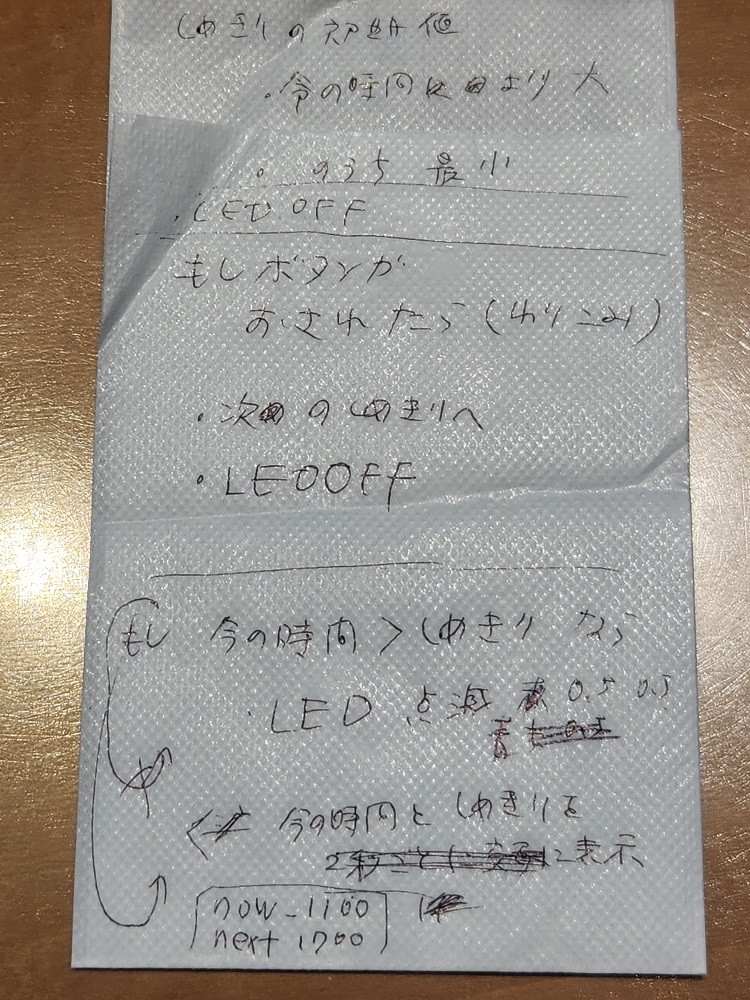 しめきりの初期値
・今の時間より大
・のうち最小
・LED OFF
もしボタンが
おされたら(わりこみ)
・次のしめきりへ
・LED OFF
もし 今の時間>しめきり なら
・LED 点滅 0.5 0.5
今の時間としめきりを
に表示
now_1100
next 1700